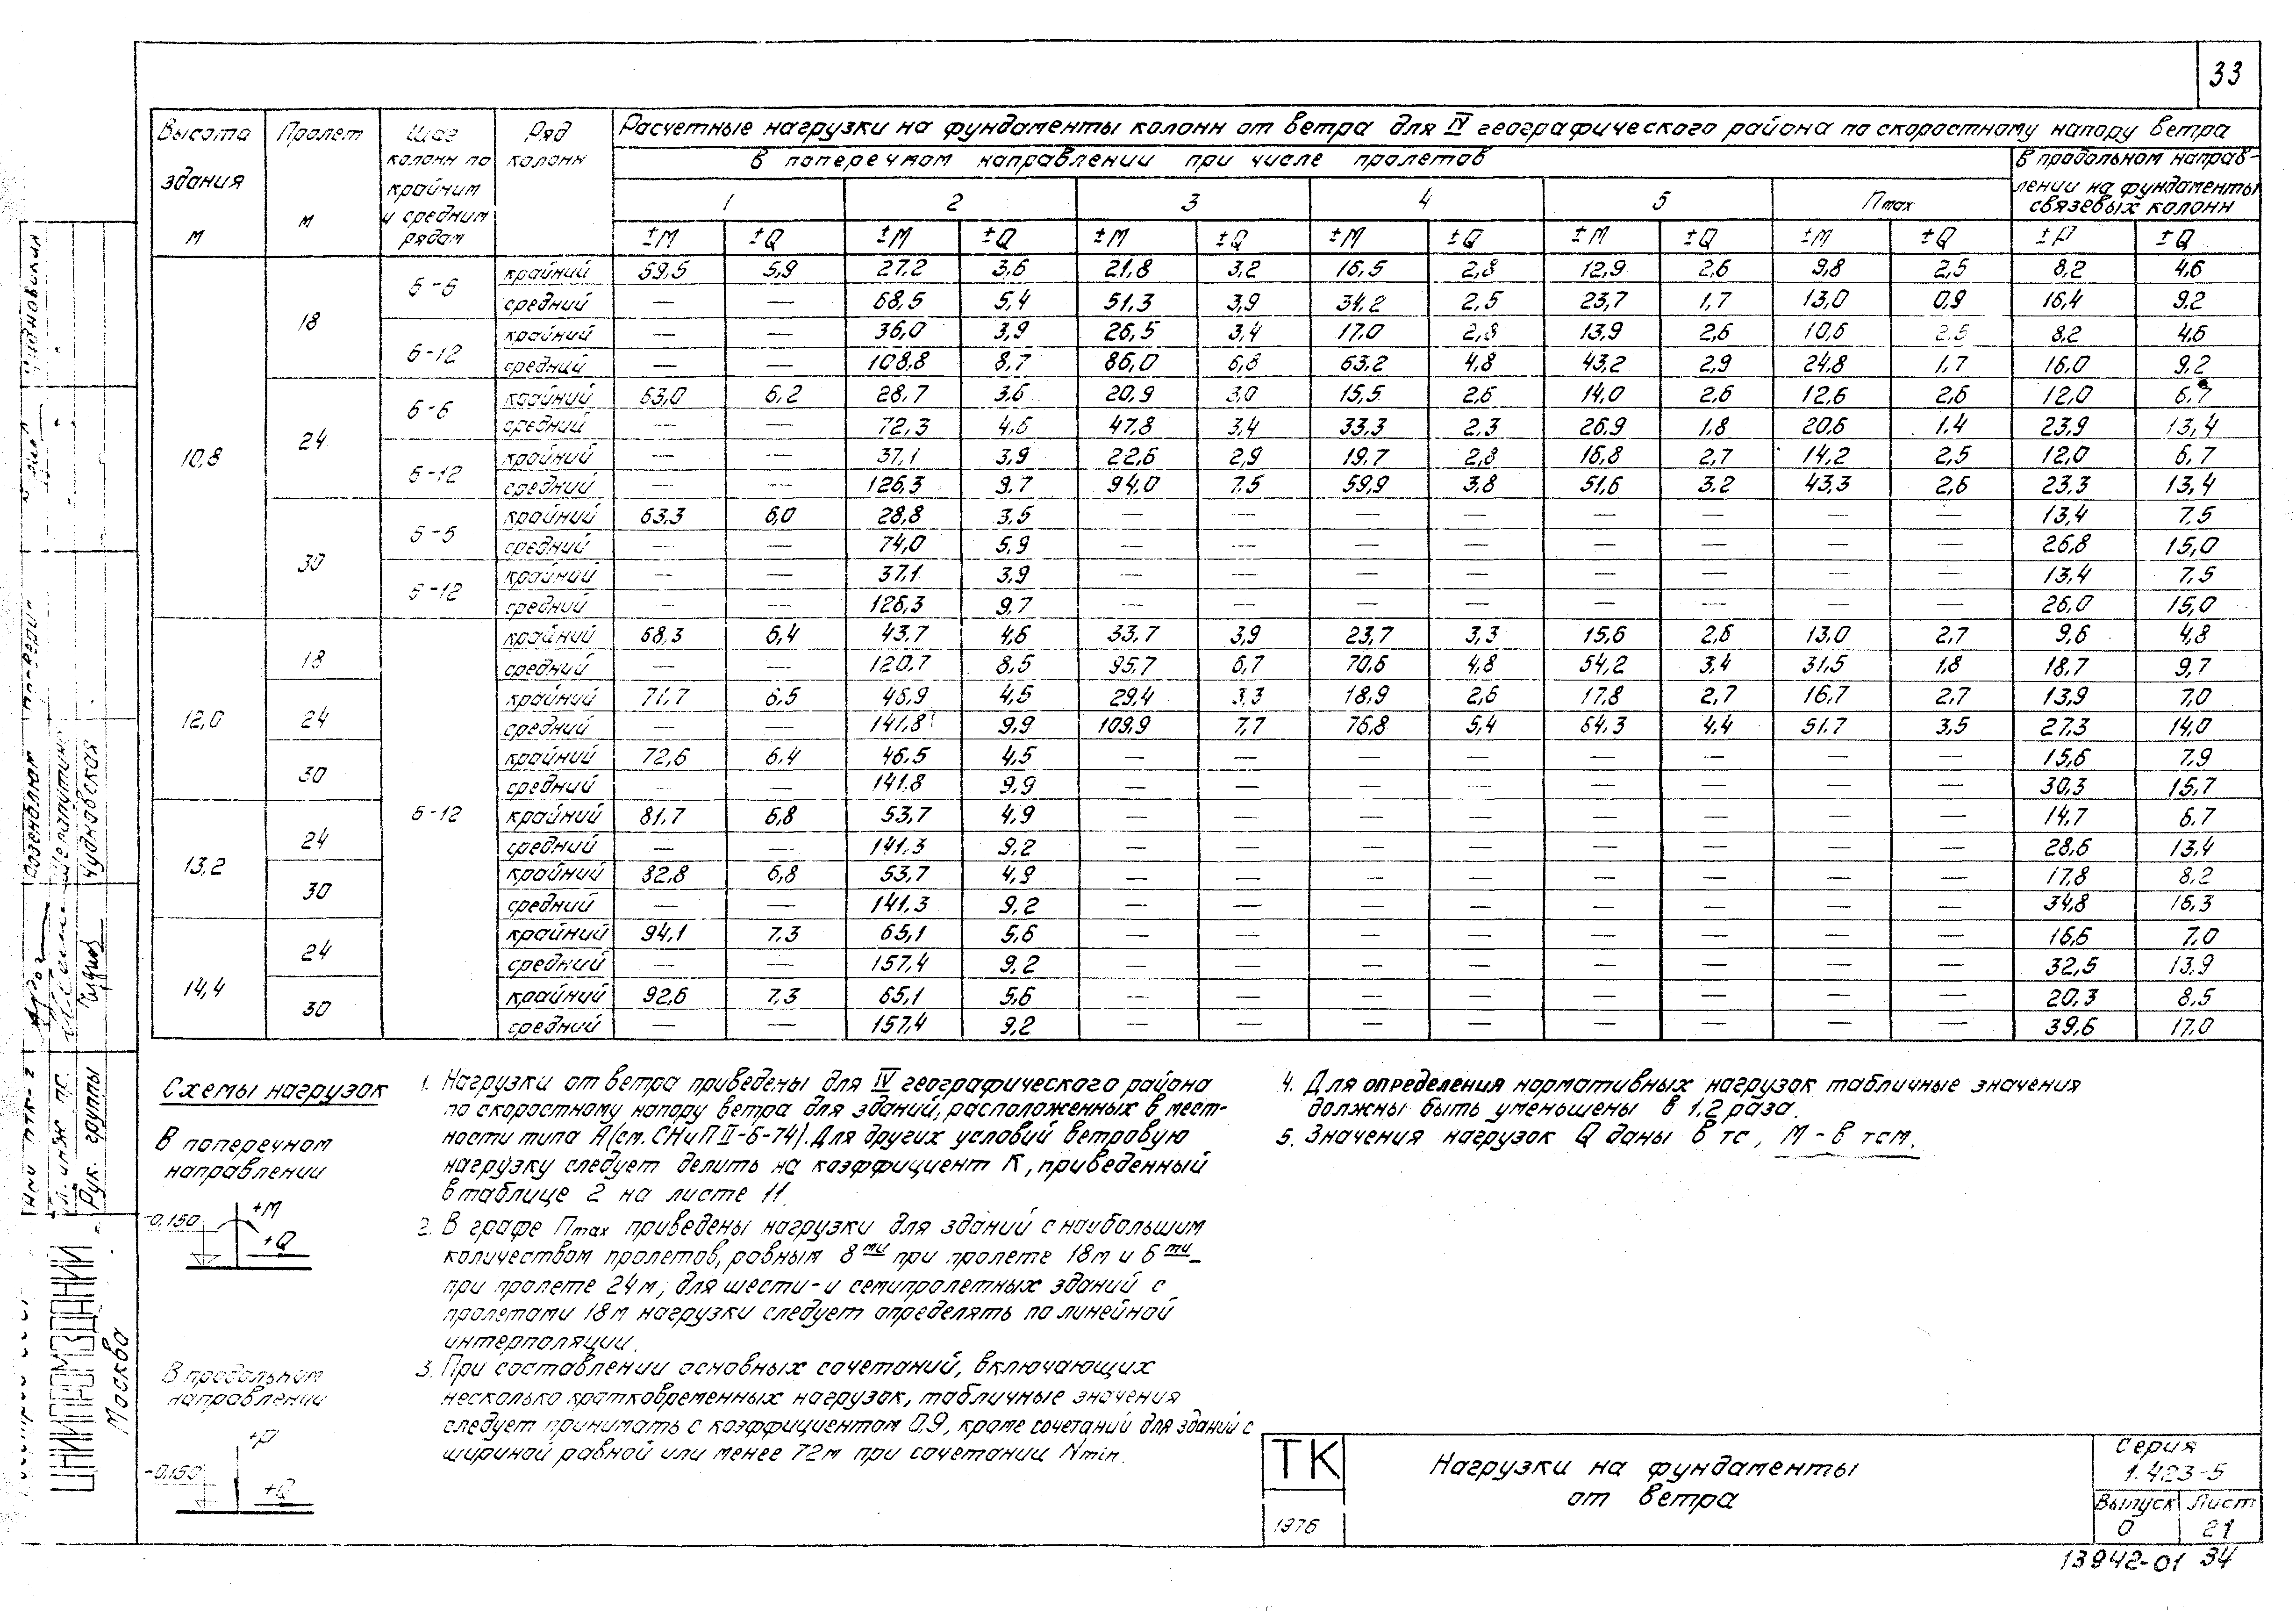 33
Высота здания м | Пролет м | Шаг колонн по крайним и средним рядам | Ряд колонн | Расчетные нагрузки на фундаменты колонн от ветра для IV географического района по скоростному напору ветра
в поперечном направлении при числе пролетов | в продольном направлении на фундаменты связевых колонн
1 | 2 | 3 | 4 | 5 | Пmax
±М | ±Q | ±М | ±Q | ±М | ±Q | ±М | ±Q | ±М | ±Q | ±М | ±Q | ±Р | ±Q
10,8 | 18 | 6-6 | крайний | 59,5 | 5,9 | 27,2 | 3,6 | 21,8 | 3,2 | 16,5 | 2,8 | 12,9 | 2,6 | 9,8 | 2,5 | 8,2 | 4,6
средний | — | — | 68,5 | 5,4 | 51,3 | 3,9 | 34,2 | 2,5 | 23,7 | 1,7 | 13,0 | 0,9 | 16,4 | 9,2
6-12 | крайний | — | — | 36,0 | 3,9 | 26,5 | 3,4 | 17,0 | 2,8 | 13,9 | 2,6 | 10,6 | 2,5 | 8,2 | 4,6
средний | — | — | 108,8 | 8,7 | 86,0 | 6,8 | 63,2 | 4,8 | 43,2 | 2,9 | 24,8 | 1,7 | 16,0 | 9,2
24 | 6-6 | крайний | 63,0 | 6,2 | 28,7 | 3,6 | 20,9 | 3,0 | 15,5 | 2,6 | 14,0 | 2,6 | 12,6 | 2,6 | 12,0 | 6,7
средний | — | — | 72,3 | 4,6 | 47,8 | 3,4 | 33,3 | 2,3 | 26,9 | 1,8 | 20,6 | 1,4 | 23,9 | 13,4
6-12 | крайний | — | — | 37,1 | 3,9 | 22,6 | 2,9 | 19,7 | 2,8 | 16,8 | 2,7 | 14,2 | 2,5 | 12,0 | 6,7
средний | — | — | 126,3 | 9,7 | 94,0 | 7,5 | 59,9 | 3,8 | 51,6 | 3,2 | 43,3 | 2,6 | 23,3 | 13,4
30 | 6-6 | крайний | 63,3 | 6,0 | 28,8 | 3,5 | — | — | — | — | — | — | — | — | 13,4 | 7,5
средний | — | — | 74,0 | 5,9 | — | — | — | — | — | — | — | — | 26,8 | 15,0
6-12 | крайний | — | — | 37,1 | 3,9 | — | — | — | — | — | — | — | — | 13,4 | 7,5
средний | — | — | 126,3 | 9,7 | — | — | — | — | — | — | — | — | 26,0 | 15,0
12,0 | 18 | 6-12 | крайний | 68,3 | 6,4 | 43,7 | 4,6 | 33,7 | 3,9 | 23,7 | 3,3 | 15,6 | 2,6 | 13,0 | 2,7 | 9,6 | 4,8
средний | — | — | 120,7 | 8,5 | 95,7 | 6,7 | 70,6 | 4,8 | 54,2 | 3,4 | 31,5 | 1,8 | 18,7 | 9,7
24 | крайний | 71,7 | 6,5 | 46,9 | 4,5 | 29,4 | 3,3 | 18,9 | 2,6 | 17,8 | 2,7 | 16,7 | 2,7 | 13,9 | 7,0
средний | — | — | 141,8 | 9,9 | 109,9 | 7,7 | 76,8 | 5,4 | 64,3 | 4,4 | 51,7 | 3,5 | 27,3 | 14,0
30 | крайний | 72,6 | 6,4 | 46,5 | 4,5 | — | — | — | — | — | — | — | — | 15,6 | 7,9
средний | — | — | 141,8 | 9,9 | — | — | — | — | — | — | — | — | 30,3 | 15,7
13,2 | 24 | крайний | 81,7 | 6,8 | 53,7 | 4,9 | — | — | — | — | — | — | — | — | 14,7 | 6,7
средний | — | — | 141,3 | 9,2 | — | — | — | — | — | — | — | — | 28,6 | 13,4
30 | крайний | 82,8 | 6,8 | 53,7 | 4,9 | — | — | — | — | — | — | — | — | 17,8 | 8,2
средний | — | — | 141,3 | 9,2 | — | — | — | — | — | — | — | — | 34,8 | 16,3
14,4 | 24 | крайний | 94,1 | 7,3 | 65,1 | 5,6 | — | — | — | — | — | — | — | — | 16,6 | 7,0
средний | — | — | 157,4 | 9,2 | — | — | — | — | — | — | — | — | 32,5 | 13,9
30 | крайний | 92,6 | 7,3 | 65,1 | 5,6 | — | — | — | — | — | — | — | — | 20,3 | 8,5
средний | — | — | 157,4 | 9,2 | — | — | — | — | — | — | — | — | 39,6 | 17,0
Схемы нагрузок
В поперечном
направлении
-0,150
+М
+Q
В продольном
направлении
+Р
-0,150
+Q
1. Нагрузки от ветра приведены для IV географического района
по скоростному напору ветра для зданий, расположенных в мест-
ности типа А (см. СНиП II-6-74). Для других условий ветровую
нагрузку следует делить на коэффициент К, приведенный
в таблице 2 на листе 11.
2. В графе Пmax приведены нагрузки для зданий с наибольшим
количеством пролетов, равным 8ми при пролете 18м и 6ти —
при пролете 24м; для шести- и семипролетных зданий с
пролетами 18м нагрузки следует определять по линейной
интерполяции.
3. При составлении основных сочетаний, включающих
несколько кратковременных нагрузок, табличные значения
следует принимать с коэффициентом 0,9, кроме сочетаний для зданий с
шириной равной или менее 72м при сочетании Nmin.
4. Для определения нормативных нагрузок табличные значения
должны быть уменьшены в 1,2 раза.
5. Значения нагрузок Q даны в тс, М – в тсм.
ТК
1976
Нагрузки на фундаменты
от ветра
Серия
1.423-5
Выпуск Лист
0 21
13942-01 34
Розенблюм
Шепотутин
Чудновская
Рук. группы
ЦНИИПРОМЗДАНИЙ
Москва